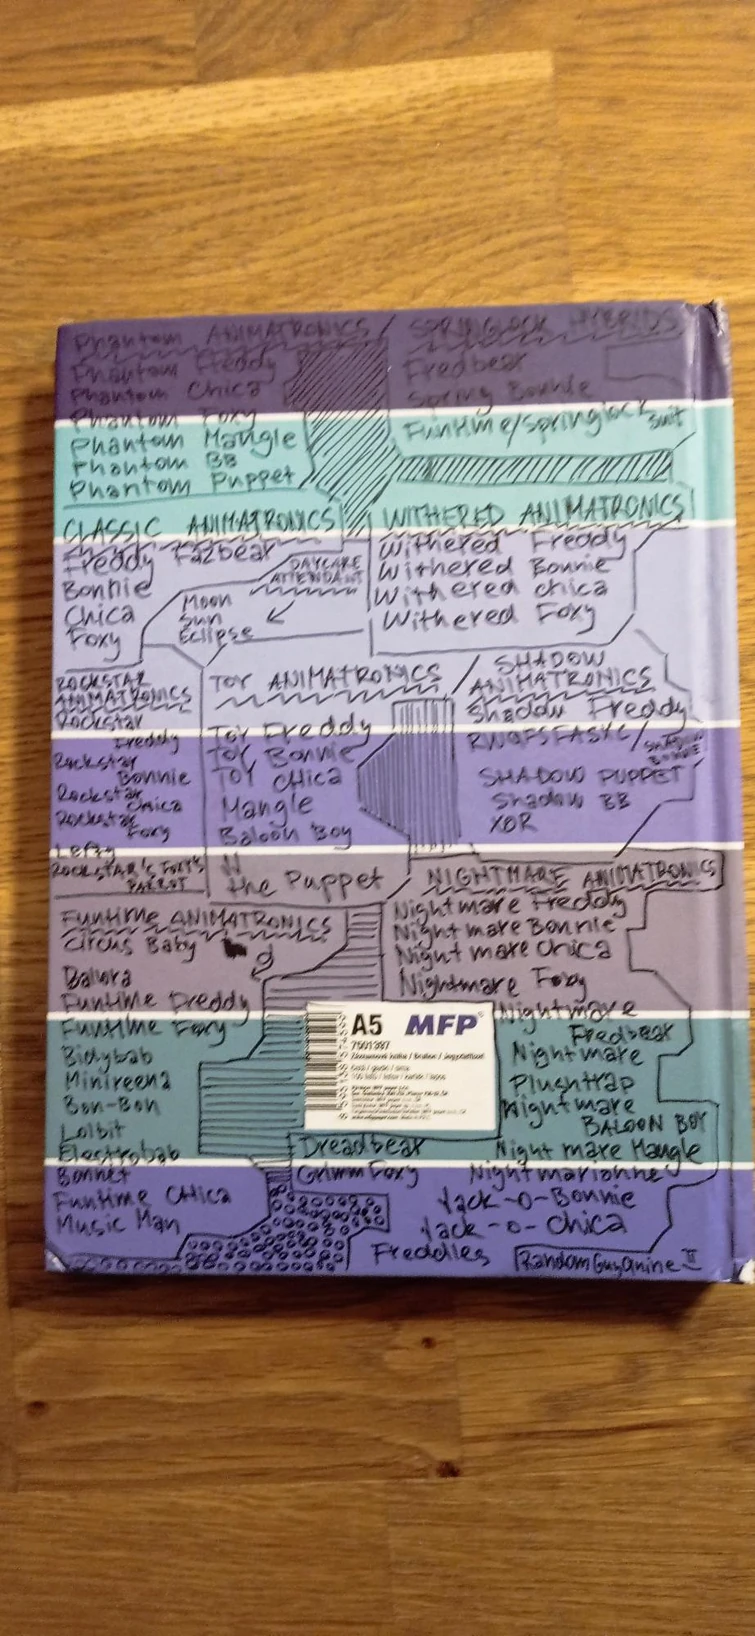 Phantom ANIMATRONICS
Phantom Freddy
Phantom Chica
Phantom Foxy
Phantom Mangle
Phantom BB
Phantom Puppet
SPRINGLOCK HYBRIDS
Fredbear
Spring Bonnie
Funtime/Springlock suit
CLASSIC ANIMATRONICS
Freddy Fazbear
Bonnie
Chica
Foxy
DAYCARE
ATTENDANT
Moon
Sun
Eclipse
WITHERED ANIMATRONICS
Withered Freddy
Withered Bonnie
Withered chica
Withered Foxy
ROCKSTAR
ANIMATRONICS
Rockstar
Freddy
Rockstar
Bonnie
Rockstar
Chica
Rockstar
Foxy
Lefty
ROCKSTAR'S FOXY'S
PARROT
TOY ANIMATRONICS
Toy Freddy
Toy Bonnie
TOY CHica
Mangle
Baloon Boy
JJ
the Puppet
SHADOW
ANIMATRONICS
Shadow Freddy
RWQFSFASXC/
SHADOW
BONNIE
SHADOW PUPPET
Shadow BB
XOR
FUNTIME ANIMATRONICS
Circus Baby
Balora
Funtime Freddy
Funtime Foxy
Bidybab
Minireena
Bon-Bon
Lolbit
Electrobab
Bonnet
Funtime CHica
Music Man
NIGHTMARE ANIMATRONICS
Nightmare Freddy
Nightmare Bonnie
Nightmare Chica
Nightmare Foxy
Nightmare
Fredbear
Nightmare
Plushtrap
Nightmare
BALOON BOY
Nightmare Mangle
Nightmarionne
Jack-O-Bonnie
Jack-o-Chica
Dreadbear
Grimm Foxy
Freddles
RandomGuyanine II
A5 MFP
7501387